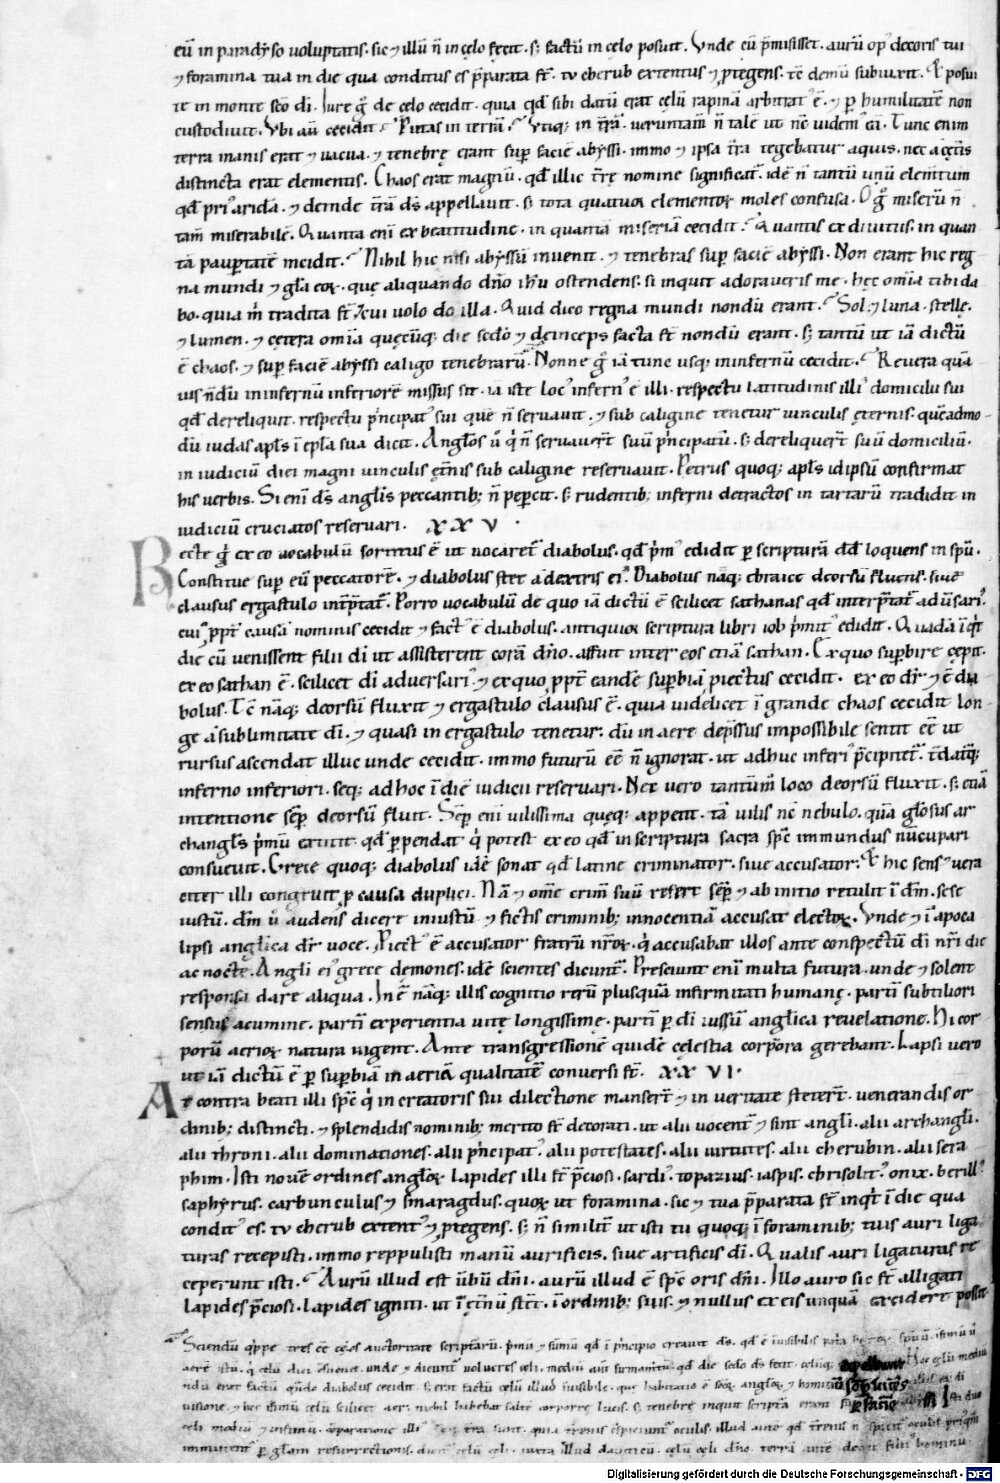 eū in paradyso voluptatis. sic ⁊ illū n̄ in cęlo fecit. s; factū in cęlo posuit. Vnde cū p̄misisset. aurū op' decoris tui
⁊ foramina tua in die qua conditus es p̄parata st̄. tu cherub extentus ⁊ p̄tegens. tc̄ demū subiūxit. Et posui
te in monte sc̄o dī. Iure g̊ de cęlo cecidit. quia qd̄ sibi datū erat cęlū rapinā arbitrat' ē. ⁊ p humilitatē non
custodiuit. Vbi aū cecidit? Putas in terrā? Vtiq; in t̄rā. ueruntam̄ n̄ talē ut nc̄ videm' eā. Tunc enim
terra inanis erat ⁊ vacua. ⁊ tenebrę erant sup faciē abyssi. immo ⁊ ipsa t̄ra tegebatur aquis. nec a cęt̄is
distincta erat elementis. Chaos erat magnū. qd̄ illic t̄rę nomine significat̄. idē n̄ tantū unū elem̄tum
qd̄ pri' arida. ⁊ deinde t̄rā ds̄ appellauit. s; tota quatuor elementoꝝ moles confusa. O g̊ miserū n̄
tam̄ miserabilē. Quanta eni ex beatitudine. in quantā miseriā cecidit. Quantis ex diuitiis. in quan
tā paup̄tatē incidit. Nihil hic nisi abyssū inuenit. ⁊ tenebras sup faciē abyssi. Non erant hic reg
na mundi ⁊ gl̄a eoꝝ. quę aliquando dn̄o ih̄u ostendens. si inquit adoraueris me. hęc om̄ia tibi da
bo. quia m̄ tradita st̄ ⁊ cui uolo do illa. Quid dico regna mundi nondū erant? Sol. ⁊ luna. stellę.
⁊ lumen. ⁊ cętera om̄ia quęcūq; die scd̄o ⁊ deinceps facta st̄ nondū erant. s; tantū ut iā dictū
ē chaos. ⁊ sup faciē abyssi caligo tenebrarū. Nonne g̊ iā tunc usq; in infernū cecidit? Reuera quā
uis n̄dū in infernū inferiorē missus sit. iā iste loc' infern' ē illi. respectu latitudinis illi' domicilii sui
qd̄ dereliquit. respectu p̄ncipat' sui quē n̄ seruauit. ⁊ sub caligine tenetur uinculis ęternis. quēadmo
dū iudas apl̄s ī epl̄a sua dicit. Angl̄os ů qi n̄ seruauer̄t suū p̄ncipatū. s; dereliquer̄t suū domiciliū.
in iudiciū diei magni uinculis ęt̄nis sub caligine reseruauit. Petrus quoq; apl̄s idipsū confirmat
his uerbis. Si eni ds̄ angl̄is peccantib; n̄ pepercit. s; rudentib; inferni detractos in tartarū tradidit in
iudiciū cruciatos reseruari. XXV.
Recte g̊ ex eo uocabulū sortitus ē ut uocaret̄ diabolus. qd̄ p̄m' edidit p scripturā dd̄ loquens in spū.
Constitue sup eū peccatorē. ⁊ diabolus stet a dextris ei'. Diabolus nāq; ebraice deorsū fluens. siue
clausus ergastulo int̄p̄tat̄. Porro uocabulū de quo iā dictū ē scilicet sathanas qd̄ interp̄tat̄ adūsari'
cui' ppt̄ causā nominis cecidit ⁊ fact' ē diabolus. antiquior scriptura libri iob p̄mit' edidit. Quadā iqt
die cū uenissent filii dī ut assisterent corā dn̄o. affuit inter eos etiā sathan. Ex quo supbire cępit.
ex eo sathan ē. scilicet dī aduersari'. ⁊ ex quo ppt̄ eandē supbiā p̄iectus cecidit. ex eo dr̄ ⁊ ē dia
bolus. Tc̄ nāq; deorsū fluxit ⁊ ergastulo clausus ē. quia uidelicet ī grande chaos cecidit lon
ge a sublimitate dī. ⁊ quasi in ergastulo tenetur. dū in aere dep̄ssus impossibile sentit eē ut
rursus ascendat illuc unde cecidit. immo futurū eē n̄ ignorat. ut adhuc inferi' p̄cipitet̄.
inferno inferiori. seq; ad hoc ī diē iudicii reseruari. Nec uero tantūm loco deorsū fluxit. s; etiā
intentione semp deorsū fluit. Semp eni uilissima quęq; appetit. tā uilis nc̄ nebulo. quā gl̄osus ar
changl̄s p̄mū extitit. qd̄ ppendat qi potest ex eo qd̄ in scriptura sacra spc̄ immundus nūcupari
consueuit. Grece quoq; diabolus idē sonat qd̄ latine criminator. siue accusator. Et hic sens' uera
citer illi congruit p causa duplici. Nā ⁊ om̄e crim̄ suū refert semp ⁊ ab initio retulit ī dm̄. sese
iustū. dm̄ ů audens dicere iniustū ⁊ fictis criminib; innocentiā accusat electoꝝ. Vnde ⁊ ī apoca
lipsi angl̄ica dr̄ uoce. P̄iect' ē accusator fratrū nr̄oꝝ. qi accusabat illos ante conspectū dī nr̄i die
ac nocte. Angl̄i ei' grece dęmones. idē scientes dicunt̄. Presciunt enī multa futura. unde ⁊ solent
responsa dare aliqua. In ē nāq; illis cognitio rerū plusquā infirmitati humanę. partī subtiliori
sensus acumine. partī experientia uitę longissimę. partī p dī iussū angl̄ica reuelatione. Hi cor
porū aerioꝝ natura uigent. Ante transgressionē quidē cęlestia corpora gerebant. Lapsi uero
ut iā dictū ē p supbiā in aeriā qualitatē conuersi st̄. XXVI.
At contra beati illi spc̄ qi in creatoris sui dilectione manser̄t ⁊ in ueritate steter̄t. uenerandis or
dinib; distincti. ⁊ splendidis nominib; merito st̄ decorati. ut alii uocent̄ ⁊ sint angl̄i. alii archangl̄i.
alii throni. alii dominationes. alii p̄ncipat'. alii potestates. alii uirtutes. alii cherubin. alii sera
phim. Isti nouē ordines angl̄oꝝ lapides illi st̄ p̄ciosi. sardi'. topazius. iaspis. chrisolit'. onix. berill'.
saphyrus. carbunculus ⁊ smaragdus. quoꝝ ut foramina. sic ⁊ tua p̄parata st̄ inqt ī die qua
condit' es. tu cherub extent' ⁊ p̄tegens. s; n̄ similit̄ ut isti tu quoq; ī foraminib; tuis auri liga
turas recepisti. immo reppulisti manū aurificis. siue artificis dī. Qualis auri ligaturas re
ceperunt isti? Aurū illud est ūbū dn̄i. aurū illud ē spc̄ oris dn̄i. Illo auro sic st̄ alligati
lapides p̄ciosi. lapides igniti. ut ī ęt̄nū stēt. ī ordinib; suis. ⁊ nullus ex eis unquā excidere possit.
Sciendū qippe tres eē cęlos auctoritate scripturaꝝ. p̄mū ⁊ sūmū qd̄ ī p̄ncipio creauit ds̄. qd̄ ē inuisibilis
aerē istū. qi cęlū dici ⁊ unde ⁊ dicunt̄ uolucres celi. mediū aūt firmamtū qd̄ die scd̄o ds̄ fecit. Hoc cęlū mediū
ndū erat factū qn̄do diabolus cecidit. s; erat factū cęlū illud inuisibile. que habitatio ē scōꝝ angl̄oꝝ ⁊ hominū
uisione. ⁊ hec infimū cęlū scilicet aer. nichil habebat lucis. s; tenebre inquit scriptura erant
celi mediū ⁊ infimū. terra sunt. quia terrenis illud aūt qd̄
imminent p gl̄am resurrectionis. dicit' celū celi. iuxta illud dauiticū. cęlū cęli dn̄o. terrā aūt dedit filiis hominū
Digitalisierung gefördert durch die Deutsche Forschungsgemeinschaft - DFG